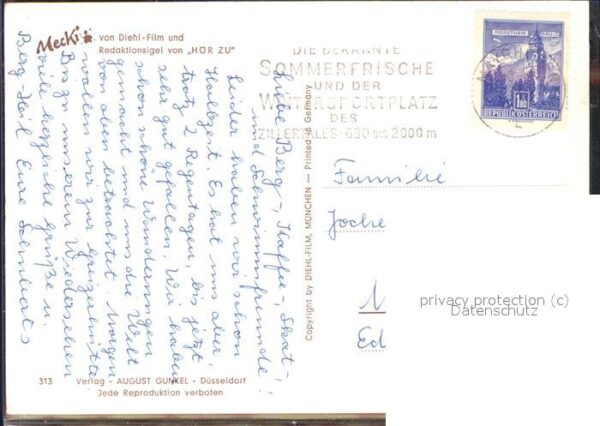 Mecki
von Diehl-Film und
Redaktionsigel von „HÖR ZU"
DIE BEKANNTE
SOMMERFRISCHE
UND DER
WINTERSPORTPLATZ
DES
ZILLERTALES-630 BIS 2000 m
1.80
REPUBLIK ÖSTERREICH
Liebe Berg-, Kaffee-, Skat-,
und Schwimmfreunde!
Leider haben wir schon
Halbzeit. Es hat uns aber,
trotz 2 Regentagen, bis jetzt
sehr gut gefallen. Wir haben
schon schöne Wanderungen
gemacht und uns die Welt
von oben betrachtet. Morgen
wollen wir zur Greizerhütte.
Bis zu unserem Wiedersehen
viele herzliche Grüße u.
Berg-Heil Eure
Copyright by DIEHL-FILM, MÜNCHEN — Printed in Germany
Familie
Joche
Ed
privacy protection (c)
Datenschutz
313
Verlag - AUGUST GUNKEL - Düsseldorf
Jede Reproduktion verboten